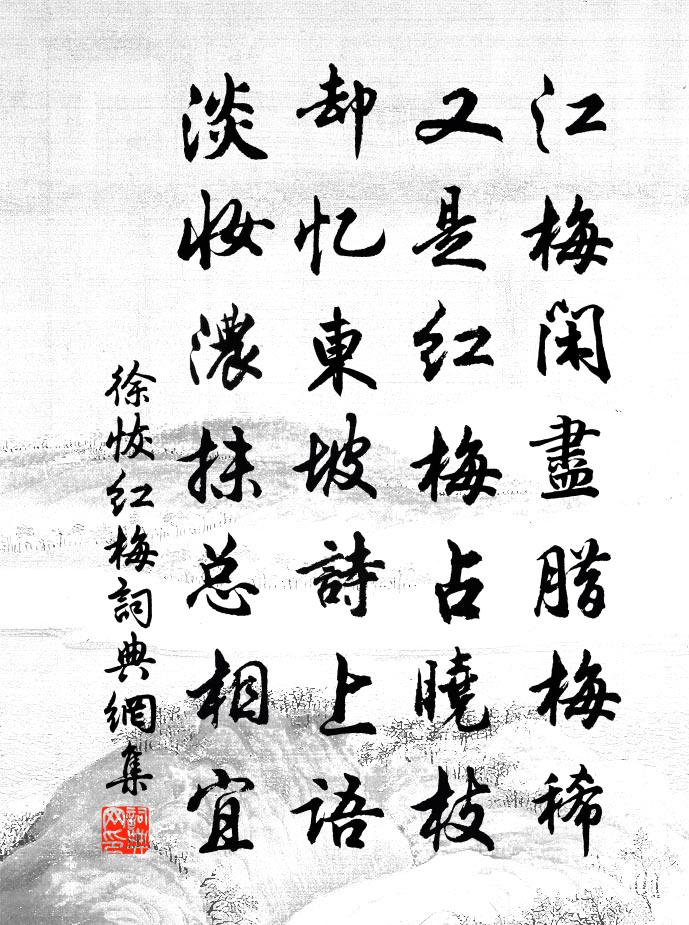 江梅闲盡腊梅稀
又是红梅占曉枝
却忆東坡詩上語
淡妆濃抹总相宜
徐恢红梅詞典網集
詞典网印